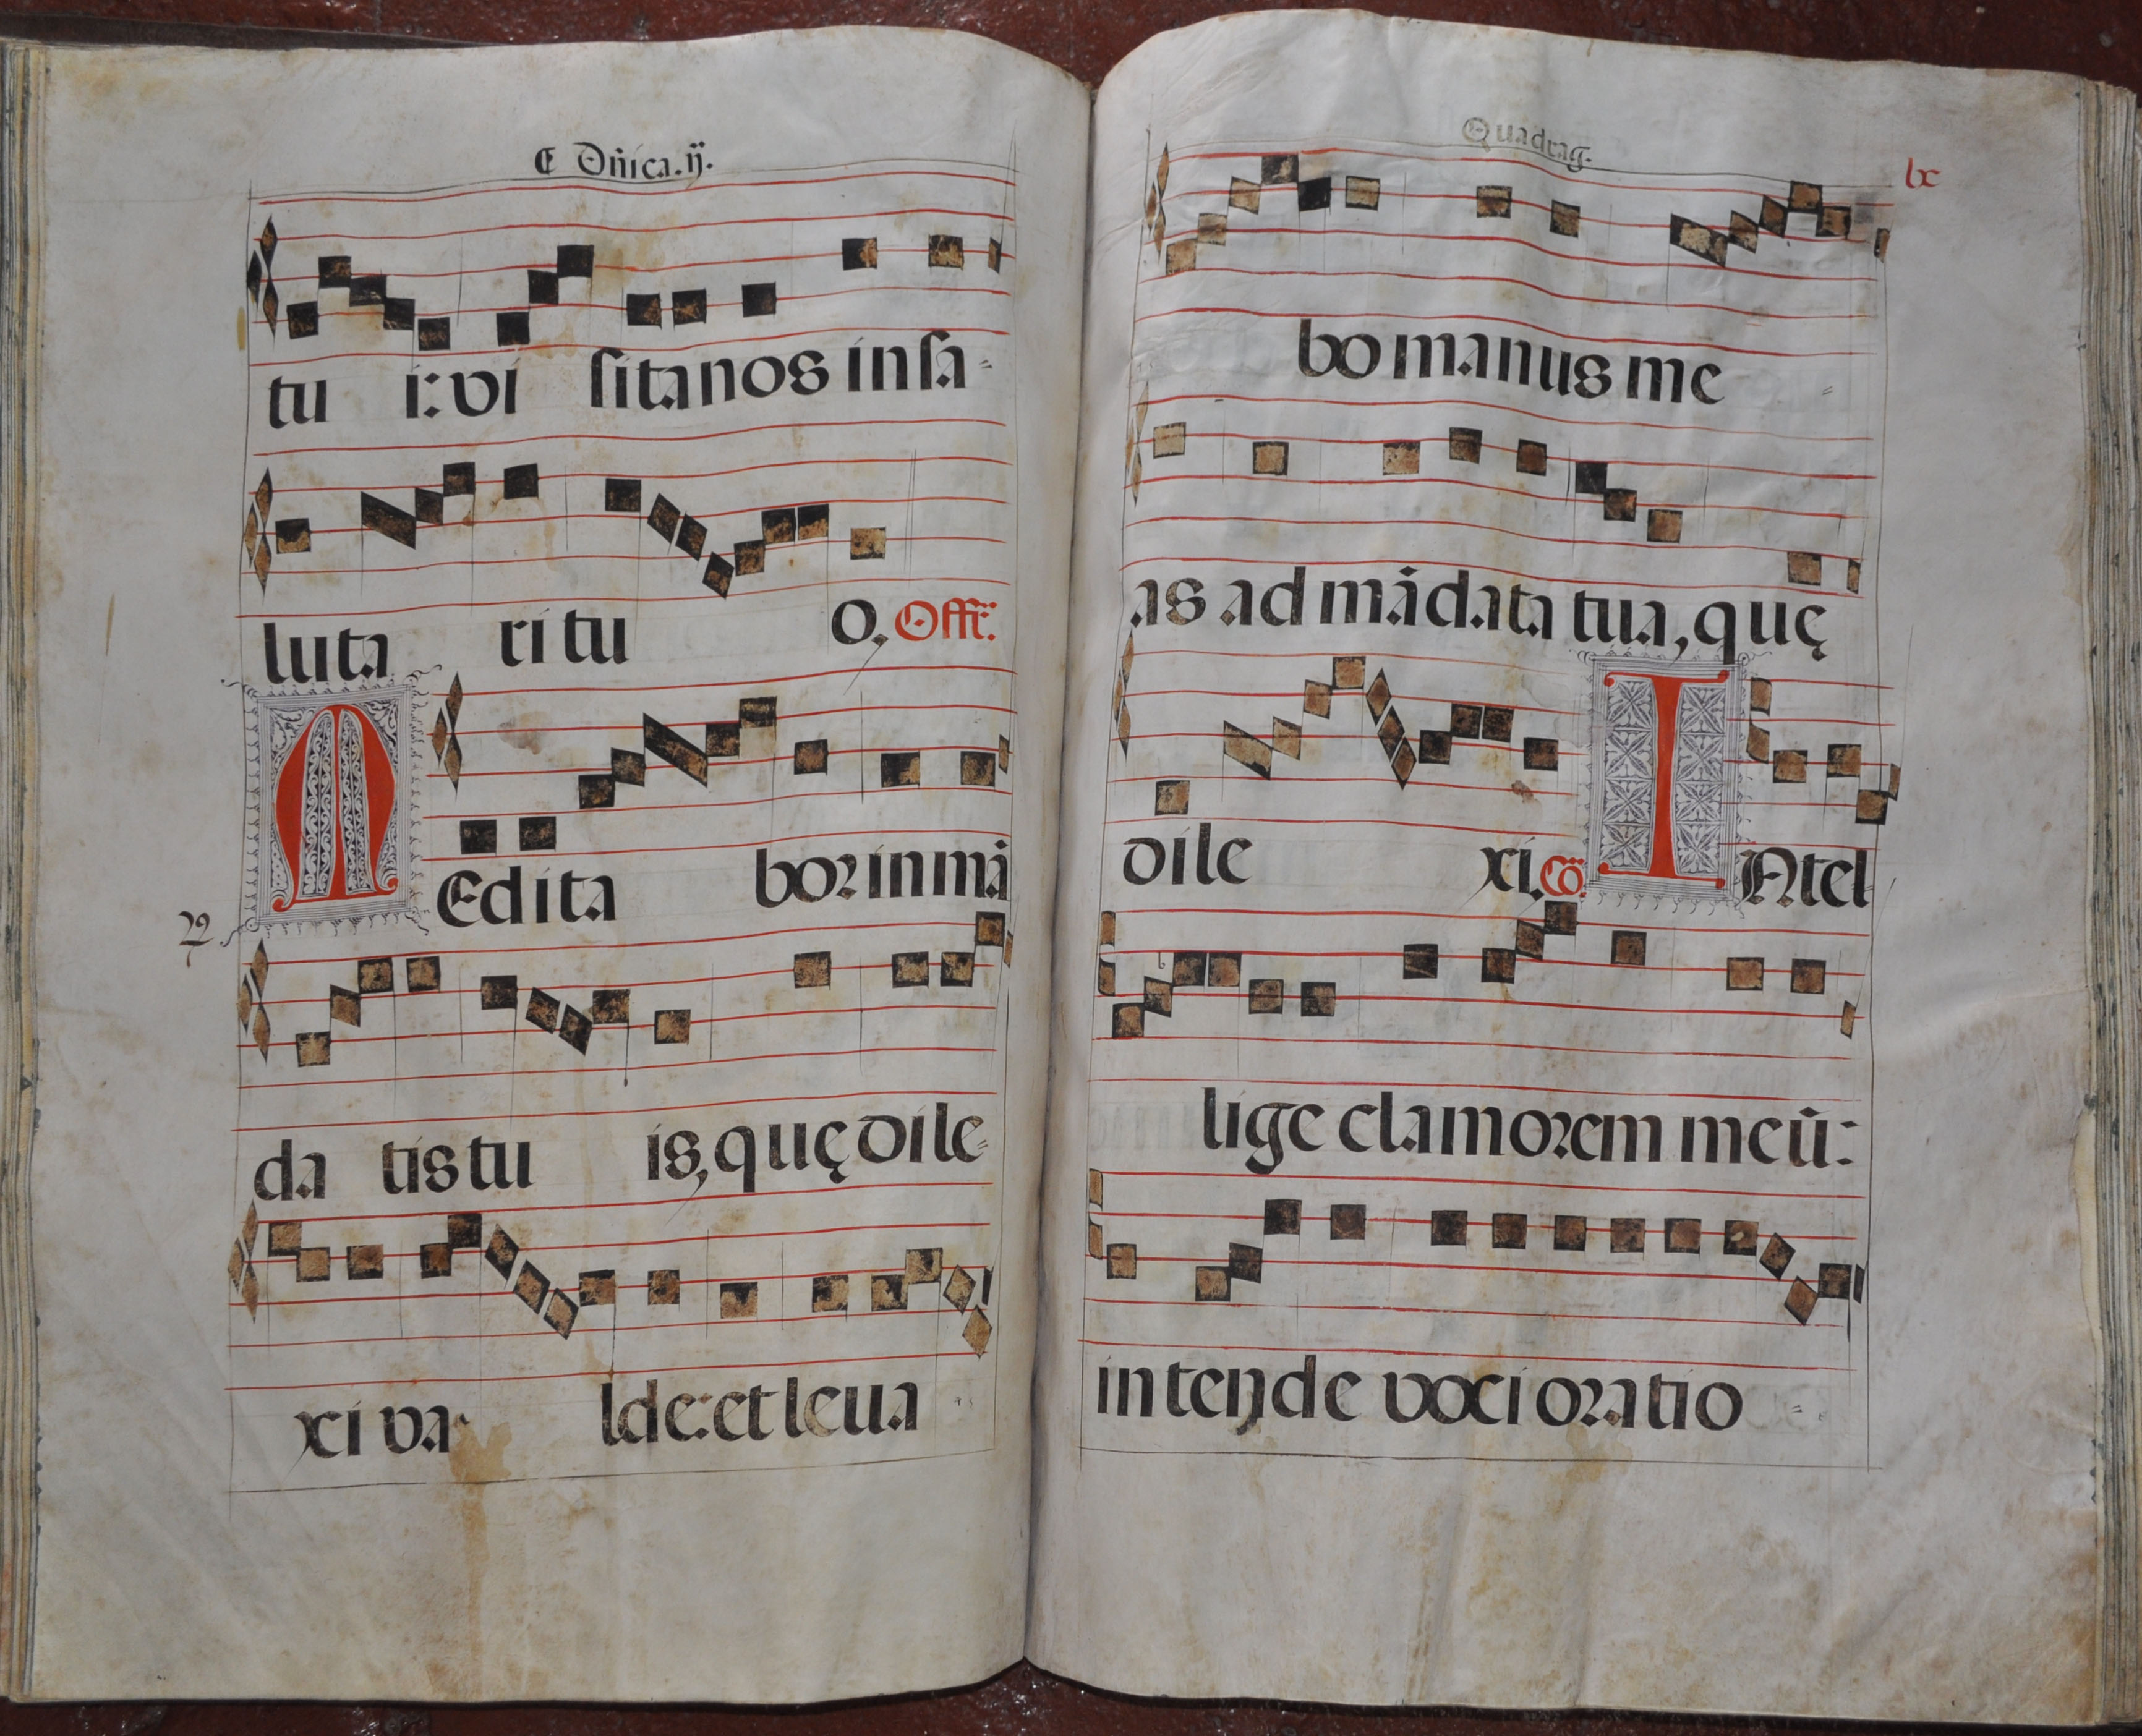 Dn̄ica. ij.
tu i: vi sita nos in sa-
luta ri tu o, Off̄.
MEdita bor in mā
da tis tu is, quę dile-
xi va lde: et leua
Quadrag.
lx
bo manus me
as ad mādata tua, quę
dile xi. Cō. INtel
lige clamorem meū:
intende voci oratio